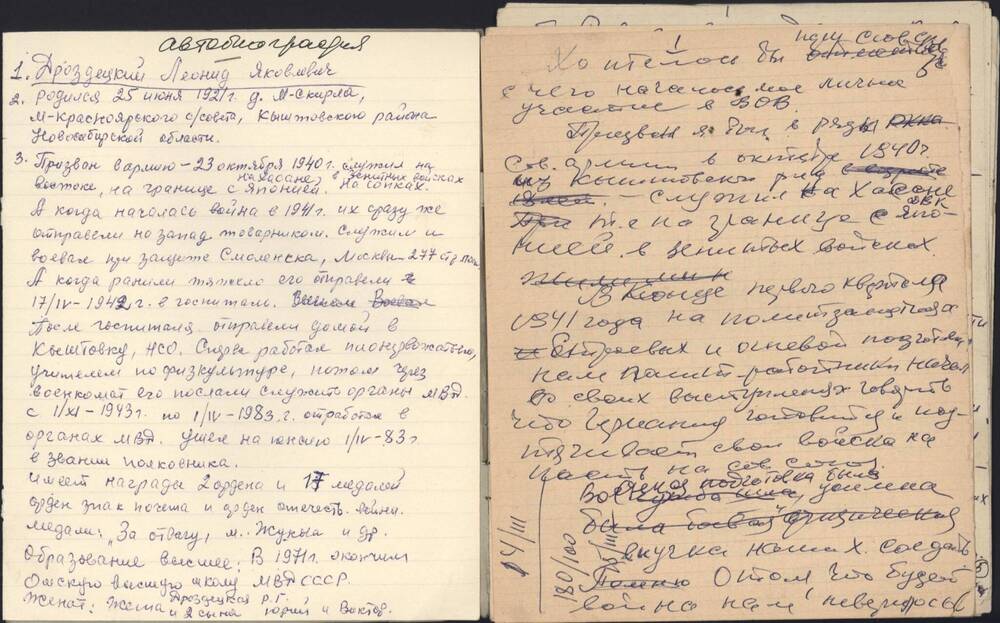 автобиография
1. Дроздецкий Леонид Яковлевич
2. родился 25 июня 1921г. д. М-Скирла,
М-Красноярского с/совета, Кыштовского района
Новосибирской области.
3. Призван в армию – 23 октября 1940г. служил на
на Хасане, в зенитных войсках
востоке, на границе с Японией. на сопках.
А когда началась война в 1941г. их сразу же
отправели на запад товарником. Служил и
воевал при защите Смоленска, Москвы – 277
А когда ранили тяжело его отправели в
17/IV-1942.г. в госпиталь.
После госпиталя отправели домой в
Кыштовку, НСО. Сперва работал пионервожатым,
учителем по физкультуре, потом через
военкомат его послали служить органы МВД.
с 1/XI – 1943г. по 1/IV-1983.г. отработал в
органах МВД. ушел на пенсию 1/IV-83г
в звании полковника.
имеет награды 2 ордена и 17 медалей
орден знак почета и орден отечеств. войны.
медали: "За отвагу, м. Жукова и др.
Образование высшее: В 1971г. окончил
Омскую высшую школу МВД СССР.
Женат: жена Дроздецкая Р.Г.
и 2 сына Юрий и Виктор.
1
Хотелось бы
с чего началось мое личное
участие в ВОВ.
Призван я был в ряды
Сов. армии в октябре 1940г.
из Кыштовского р-на
– служил на Хасане
ДВК
т.е на границе с Япо-
нией в зенитных войсках
В конце первого квартала
1941 года на политзанятиях
и строевых и огневой подготовки
нам полит-работники начали
в своих выступлениях говорить
что Германия готовится и под-
тягивает свои войска на
подготовка была
усилена
была боевая физическая
выучка наших солдат
Помню О том что будет
война нам
14/III
180/100